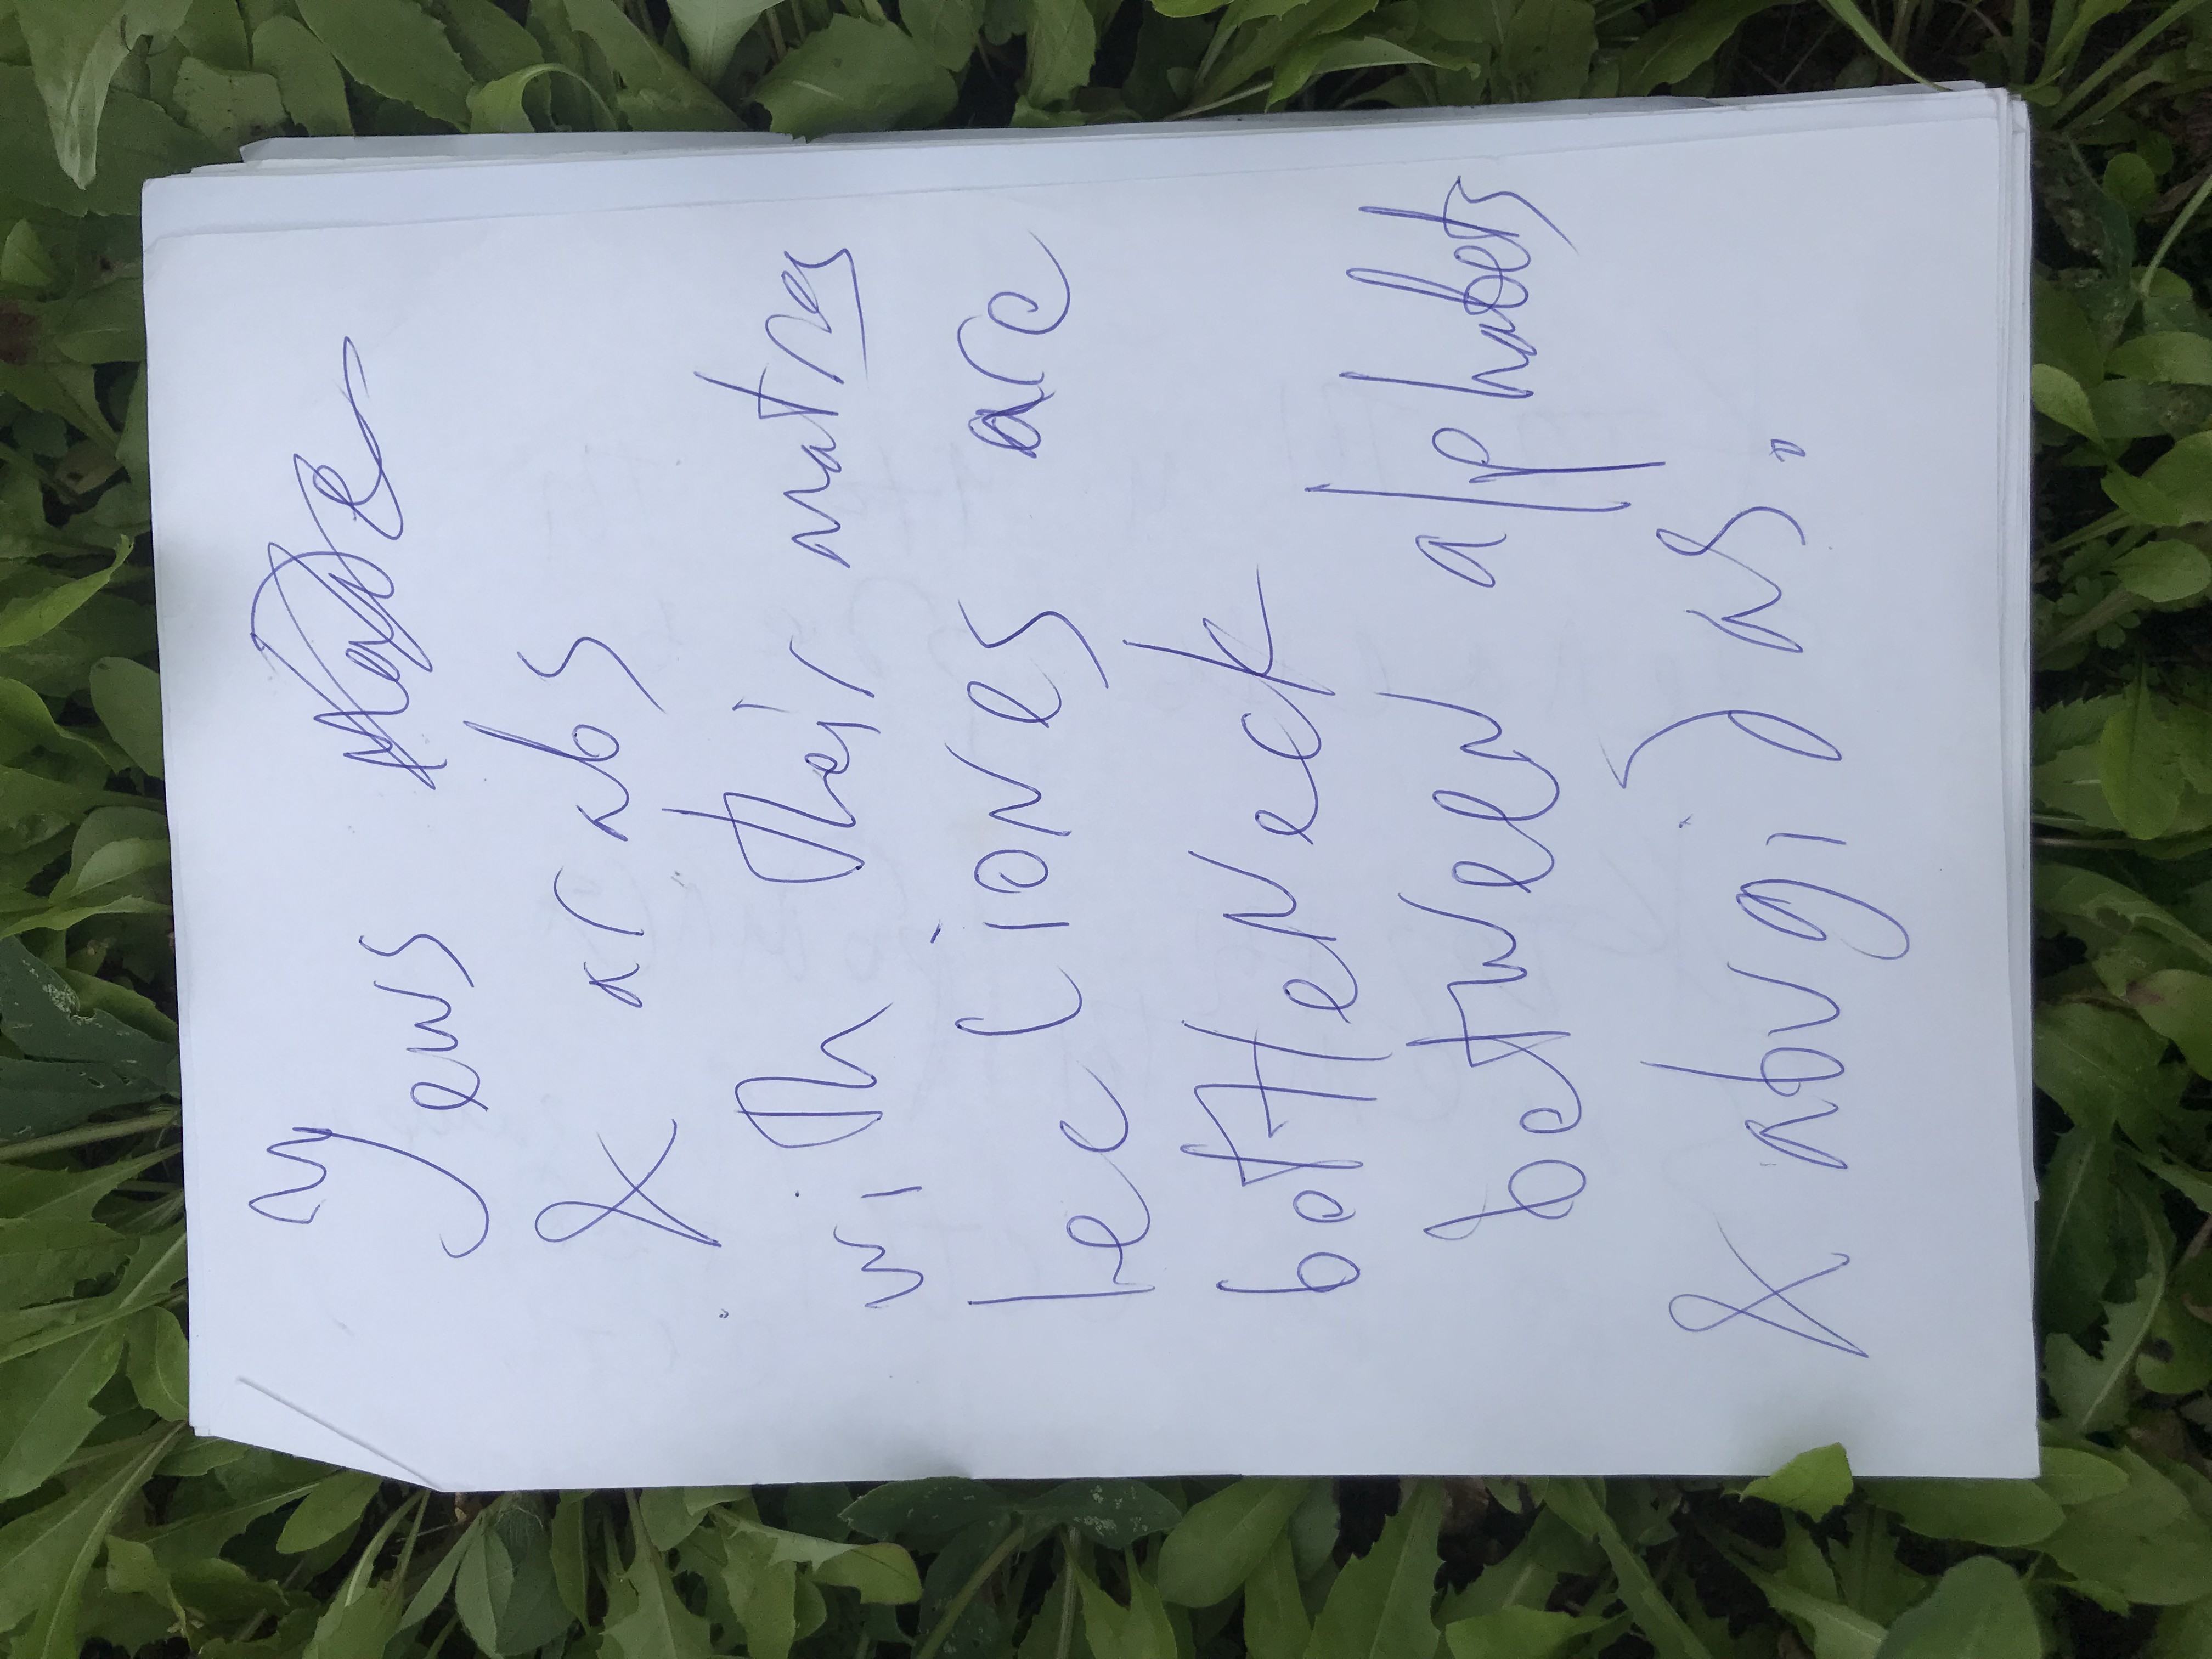 Yews
& arabs
with their matres
lecciones are
bottleneck
between alphabets
& abugidas.